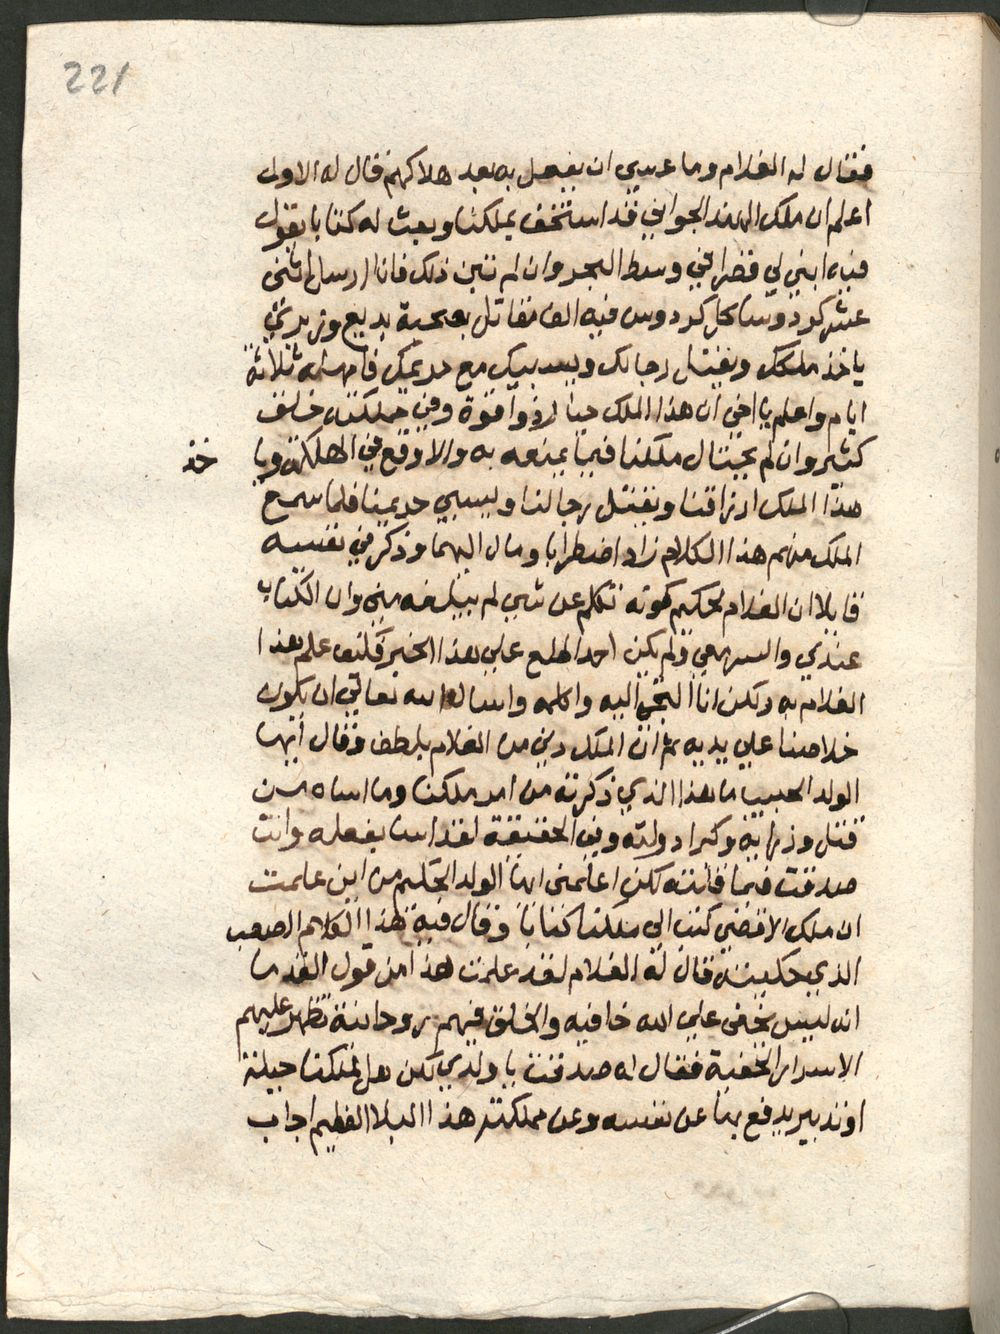 221
فقال له الغلام وما عسي ان يفعل به بعد هلاكهم قال له الاول
اعلم ان ملك الهند الجواني قد استخف بملكنا وبعث له كتابا يقول
فيه ابني لي قصرا في وسط البحر وان لم تبن ذلك فانا ارسل اثنى
عشر كردوسا كل كردوس فيه الف مقاتل بصحبة بديع وزيري
ياخذ ملكك ويقتل رجالك ويسبيك مع حريمك فامهله ثلاثة
ايام واعلم يا اخي ان هذا الملك جبار ذو قوة وفي مملكته خلق
كثير وان لم يحتال ملكنا فيما يمنعه به والا وقع في الهلكة ويا
خذ
هذا الملك ارزاقنا ويقتل رجالنا ويسبي حريمنا فلما سمع
الملك منهم هذا الكلام زاد اضطرابا ومال اليهما وذكر في نفسه
قايلا ان الغلام لحكيم كونه تكلم عن شي لم يبلغه مني وان الكتاب
عندي والسر معي ولم يكن احد اطلع علي هذا الخبر فكيف علم هذا
الغلام به ولكن انا التجي اليه واكلمه واسال الله تعالي ان يكون
خلاصنا علي يديه ثم ان الملك دني من الغلام بلطف وقال ايها
الولد الحبيب ما هذا الذي ذكرته من امر ملكنا وما اساه من
قتل وزرايه وكبرا دولته وفي الحقيقة لقد اسا بفعله وانت
صدقت فيما قلته لكن اعلمني ايها الولد الحكيم من اين علمت
ان ملك الاقصي كتب الي ملكنا كتابا وقال فيه هذا الكلام الصعب
الذي حكيته قال له الغلام لقد علمت هذا من قول القدما
انه ليس يخفى علي الله خافيه والخلق فيهم روحانية تظهر عليهم
الاسرار الخفية فقال له صدقت يا ولدي لكن هل لملكنا حيلة
او تدبير يدفع بها عن نفسه وعن مملكته هذا البلا العظيم اجاب